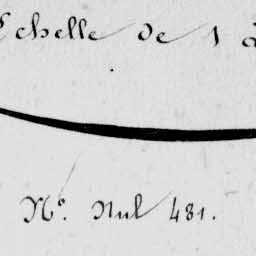 Echelle de 1 à
N°. Nul 481.